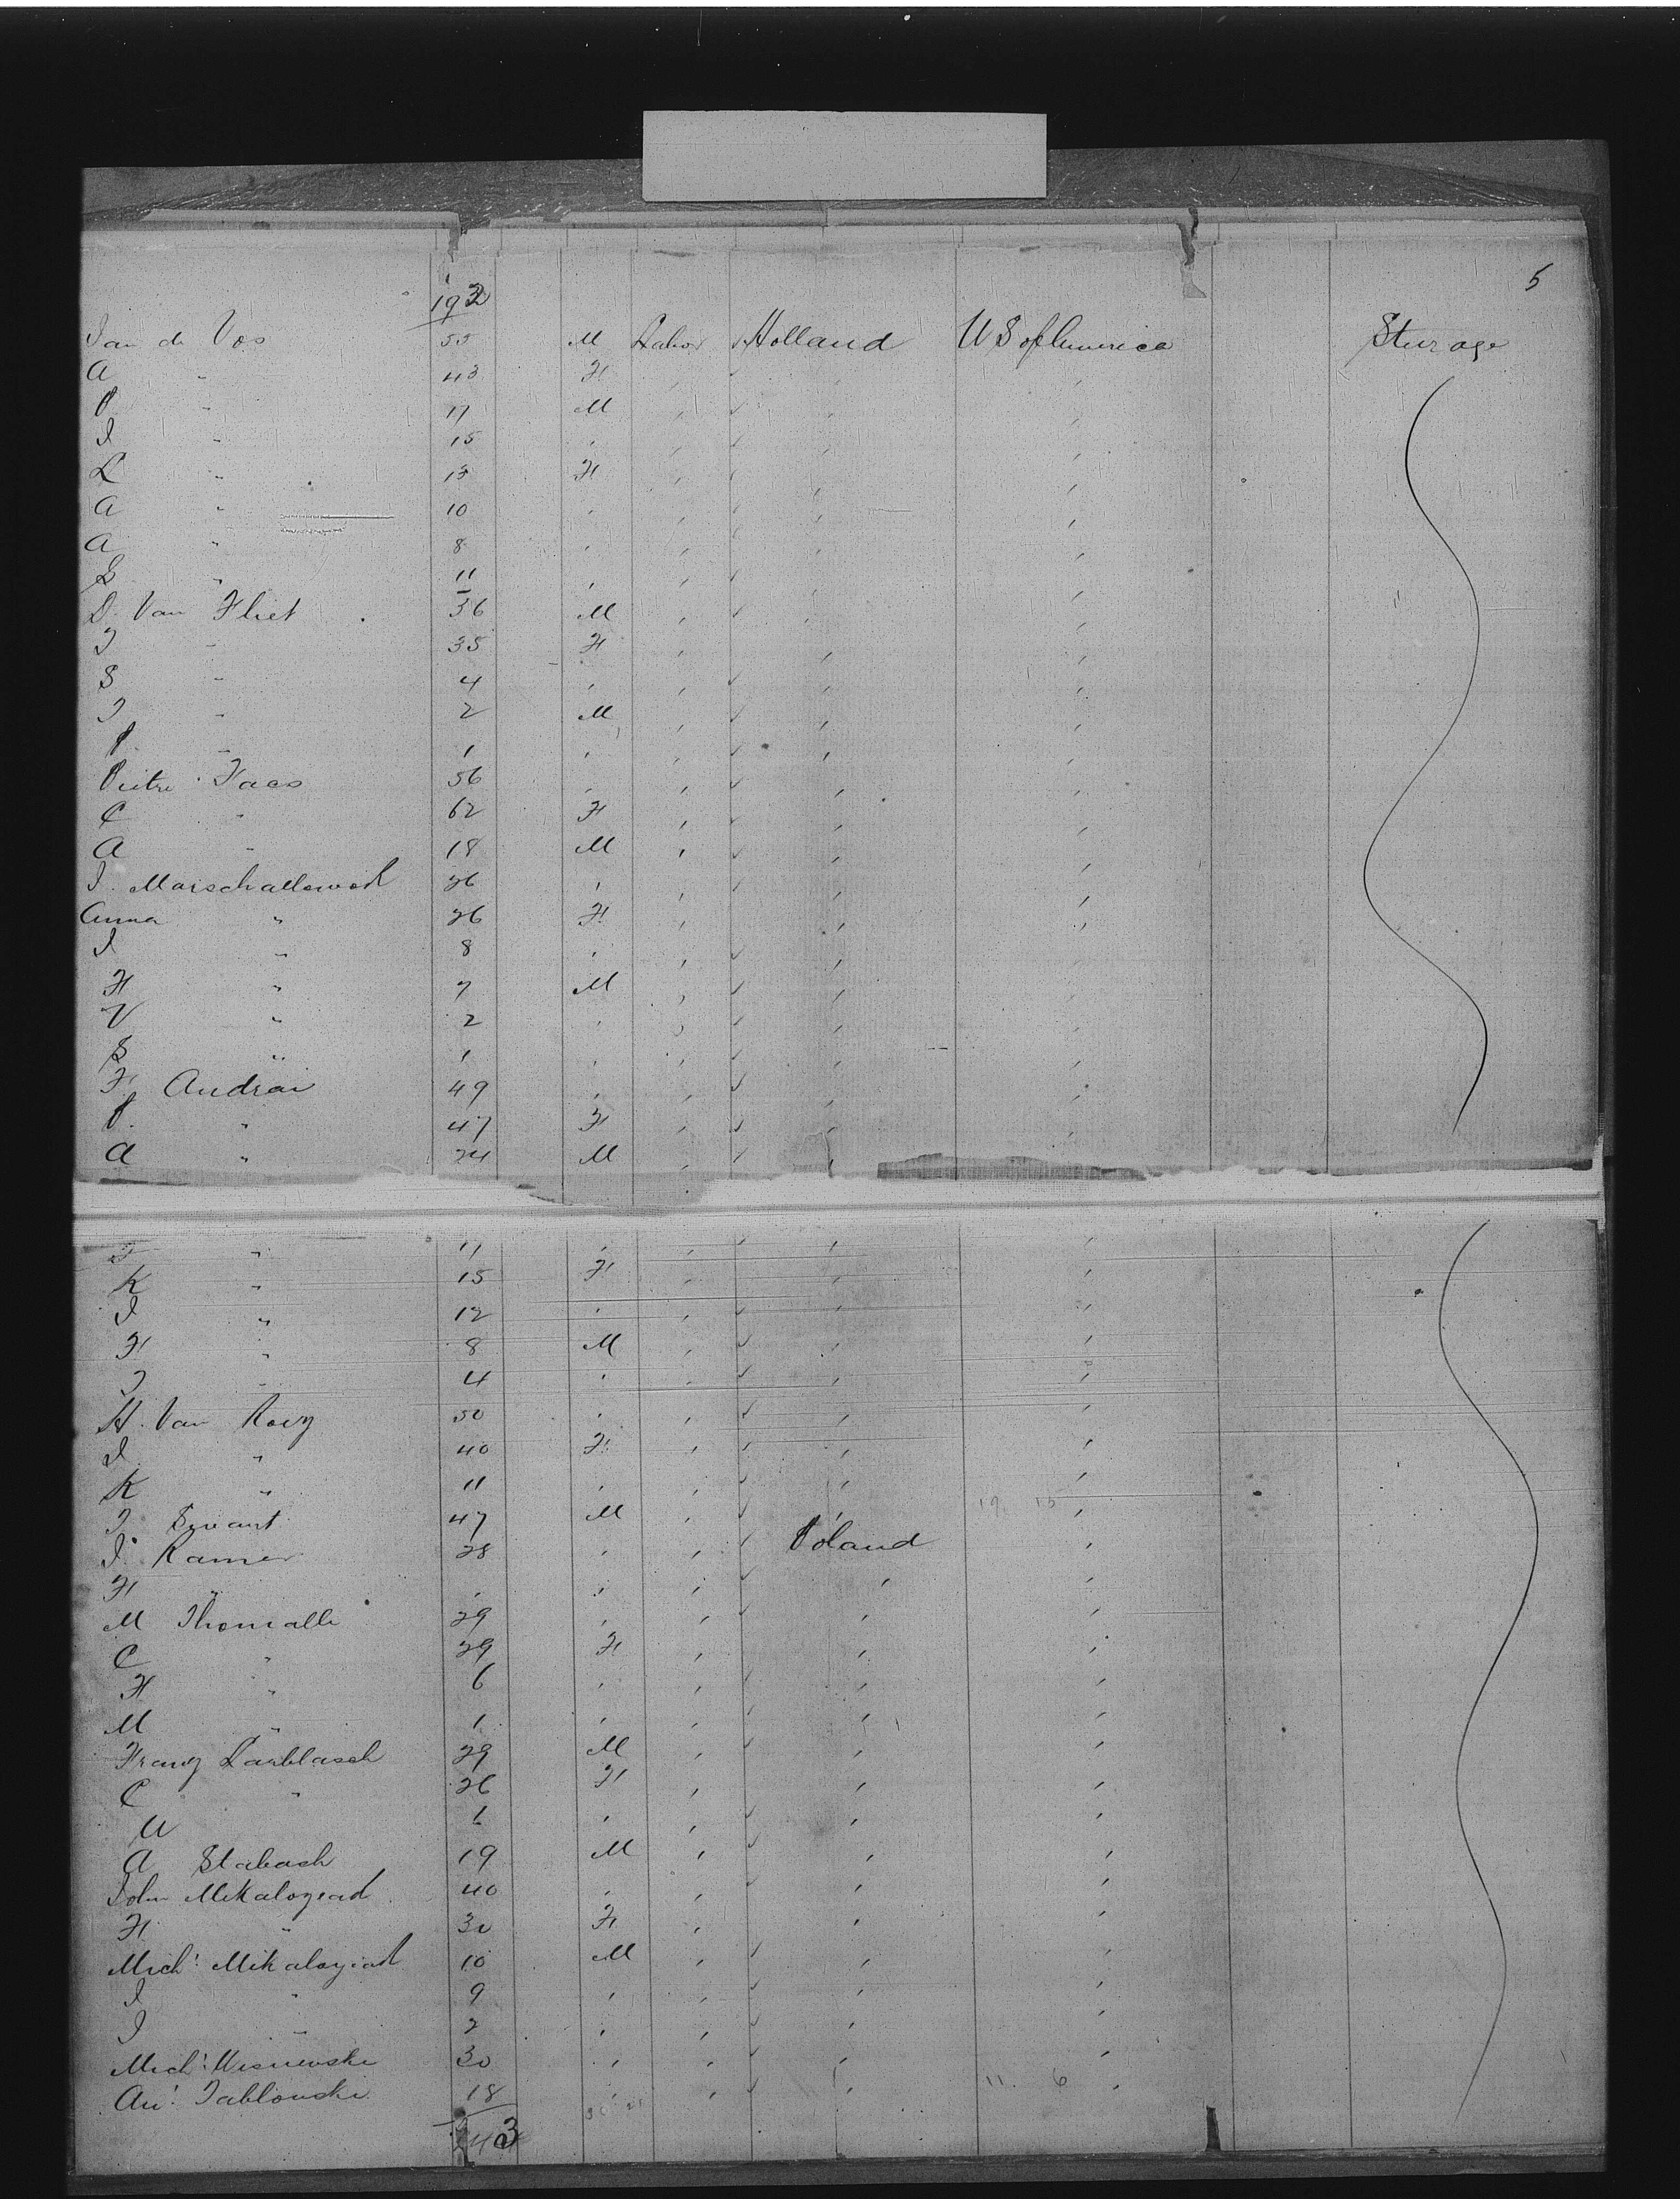 5
193
Jan de Vos 55 M Labor ✓ Holland U S of America Sturage
A " 43 F , ✓ , ,
P " 17 M , ✓ , ,
J " 15 , , ✓ , ,
L " 13 F , ✓ , ,
A " 10 , , ✓ , ,
A " 8 , , ✓ , ,
S " 11 , , ✓ , ,
D. Van Fliet 36 M , ✓ , ,
J " 35 F , , ,
S " 4 , , ✓ , ,
J " 2 M , ✓ , ,
P. " 1 , , ✓ , ,
Pietre Faes 56 , , ✓ , ,
C " 62 F , ✓ , ,
A " 18 M , ✓ , ,
J. Marschallowad 26 , , ✓ , ,
Anna " 26 F , , ,
J " 8 , , ✓ , ,
F " 7 M , ✓ , ,
V " 2 , , ✓ , ,
S " 1 , , ✓ , ,
F Andrai 49 , , ✓ , ,
P. " 47 F , ✓ , ,
A " 24 M , ✓ , ,
" 11 , , ✓ , ,
K " 15 F , , ,
J " 12 , , ✓ , ,
F " 8 M , ✓ , ,
J " 4 , , ✓ , ,
H. Van Rovy 50 , , ✓ , ,
J " 40 F , ✓ , ,
K " 11 , , ✓ , ,
J. 47 M , ✓ , ,
J. Kamer 28 , , ✓ Poland ,
F " , , , ✓ , ,
M Thomalle 29 , , ✓ , ,
C " 29 F , , ,
F " 6 , , ✓ , ,
M " 1 , , ✓ , ,
Franz Larblasch 29 M , ✓ , ,
C " 26 F , , ,
M 6 , , ✓ , ,
A Stabash 19 M , ✓ , ,
John Mikaloyead 40 , , ✓ , ,
F " 30 F , , ,
Mich! Mikaloyead 10 M , ✓ , ,
J " 9 , , ✓ , ,
J " 2 , , ✓ , ,
Mich! Wisnewski 30 , , ✓ , ,
An! Jablonski 18 , , ✓ , 11. 6 ,
243